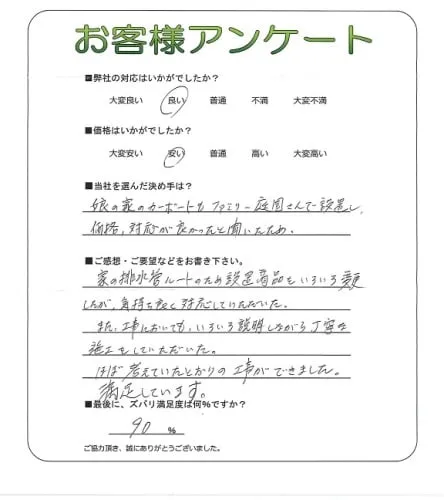 お客様アンケート
■弊社の対応はいかがでしたか?
大変良い 良い 普通 不満 大変不満
■価格はいかがでしたか?
大変安い 安い 普通 高い 大変高い
■当社を選んだ決め手は?
娘の家のカーポートもファミリー庭園さんで設置し、
価格、対応が良かったと聞いたため。
■ご感想・ご要望などをお書き下さい。
家の排水管ルートのため設置商品をいろいろ変更
したが、気持ち良く対応していただいた。
また、工事においても、いろいろ説明しながら丁寧な
施工をしていただいた。
ほぼ考えていたとおりの工事ができました。
満足しています。
■最後に、ズバリ満足度は何%ですか?
90 %
ご協力頂き、誠にありがとうございました。